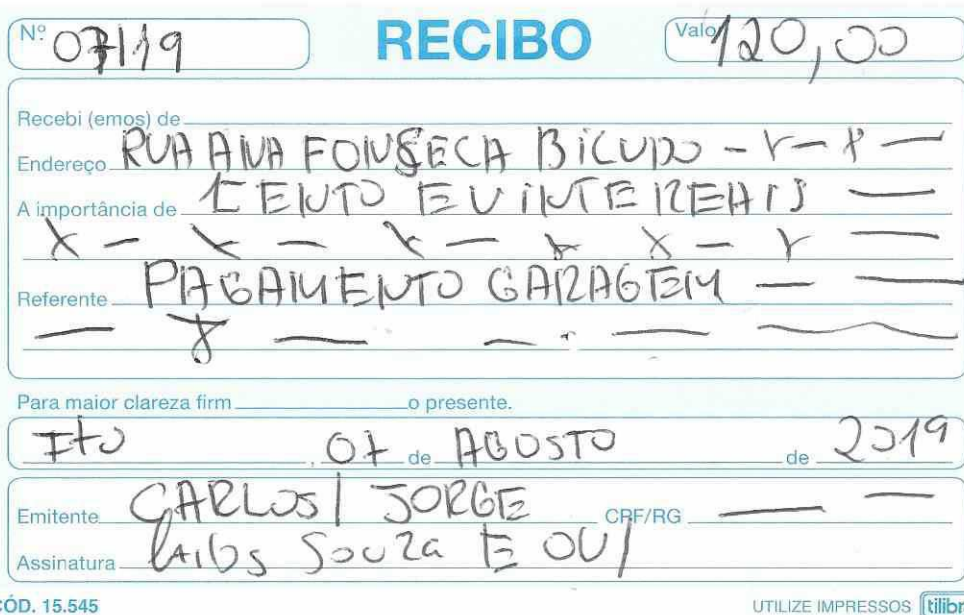 Nº 07/19 RECIBO Valor 120,00
Recebi (emos) de
Endereço RUA ANA FONSECA BICUDO - x - x —
A importância de CENTO E VINTE REAIS —
x — x — x — x x — x —
Referente PAGAMENTO GARAGEM — —
— x — — — —
Para maior clareza firm o presente.
Ito, 07 de AGOSTO de 2019
Emitente CARLOS / JORGE CRF/RG — —
Assinatura Carlos Souza E OU /
CÓD. 15.545 UTILIZE IMPRESSOS tilibr